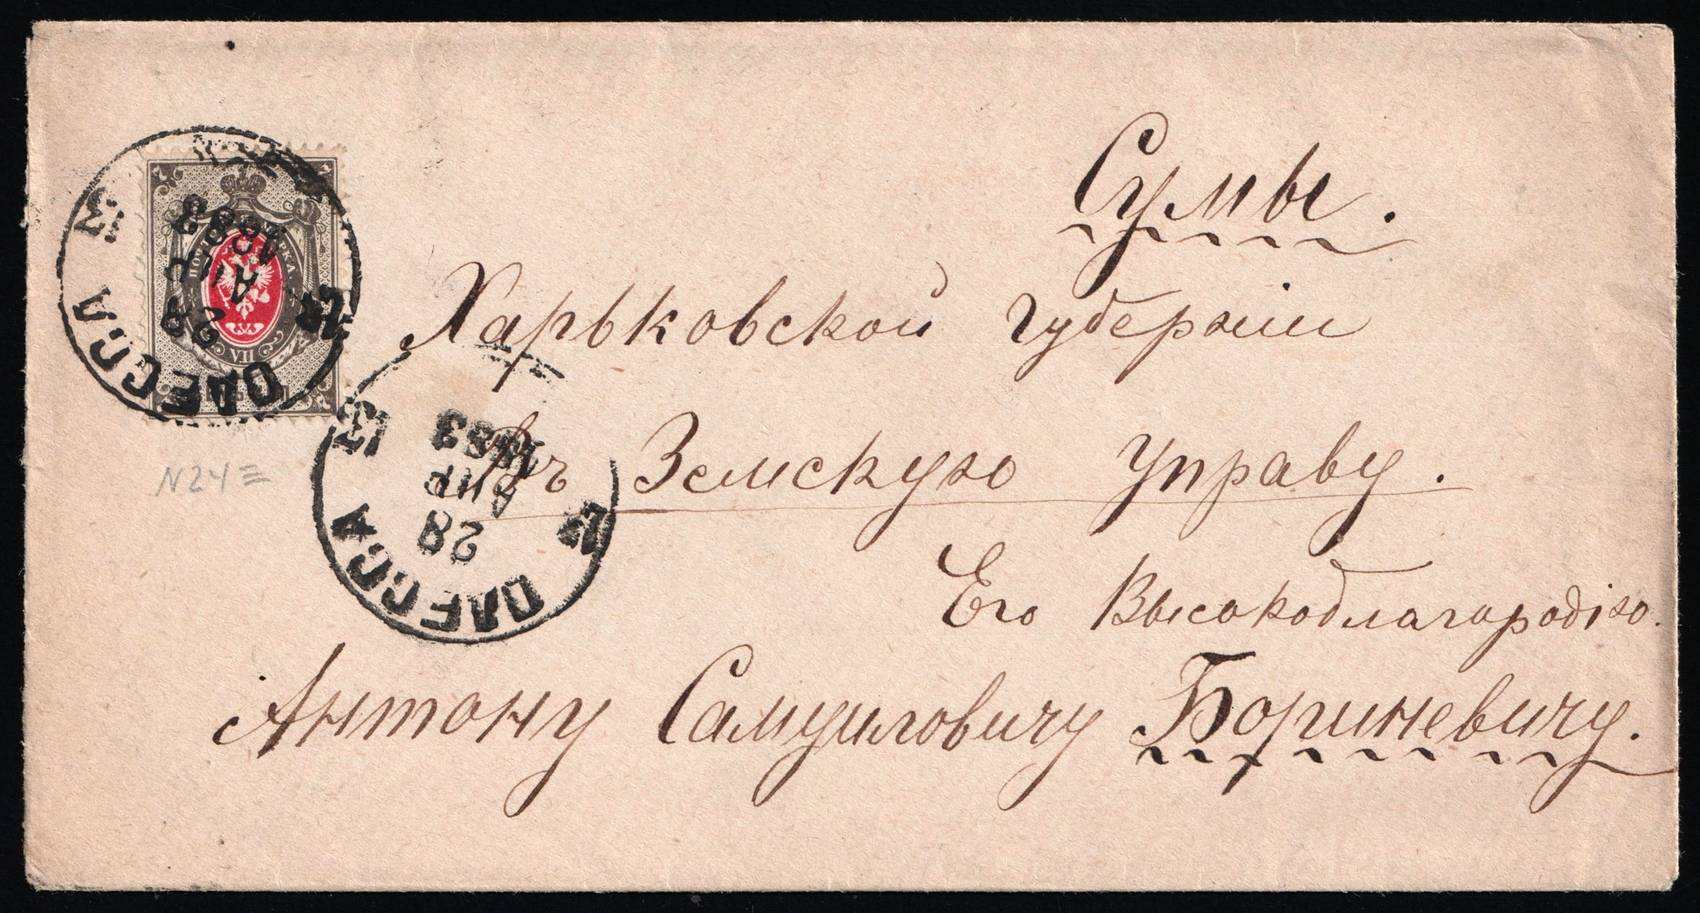 Сумы.
Харьковской губернiи
Въ Земскую Управу.
Его Высокоблагородiю.
Антону Самуиловичу Бориневичу.
ОДЕССА
28
АПР
1883
ОДЕССА
28
АПР
1883
VII
N24